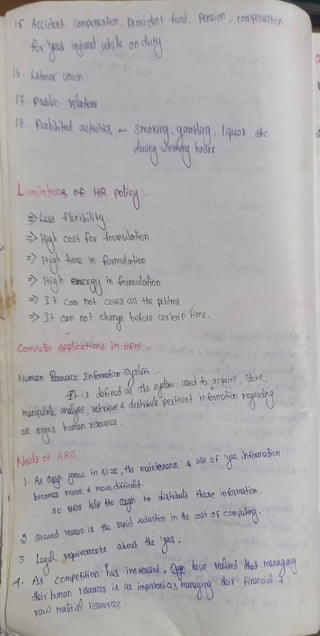 15. Accident compensation, Provident fund, Pension, compensation
for yees injured while on duty
16. Labour union
17. Public relations
18. Prohibited activities - smoking, gambling, liquor etc
during working hours.
Limitations of HR policy :-
⇒ Less flexibility
⇒ High cost for formulation
⇒ High time in formulation
⇒ High energy in formulation
⇒ It can not cover all the pblms
⇒ It can not change before certain time.
Computer Applications in HRM :-
Human Resource Information System :-
It is defined as the system used to acquire, store,
manipulate, analyse, retrieve & distribute pertinent information regarding
an orgn's human resources.
Needs of HRIS
1. As orgn grow in size, the maintenance & use of yee information
becomes more & more difficult.
so HRIS help the orgn to distribute these information.
2. Second reason is the rapid reduction in the cost of computing.
3. Legal requirements about the yees.
4. As competition has increased, orgn have realised that managing
their human resources is as important as managing their financial &
raw material resources.